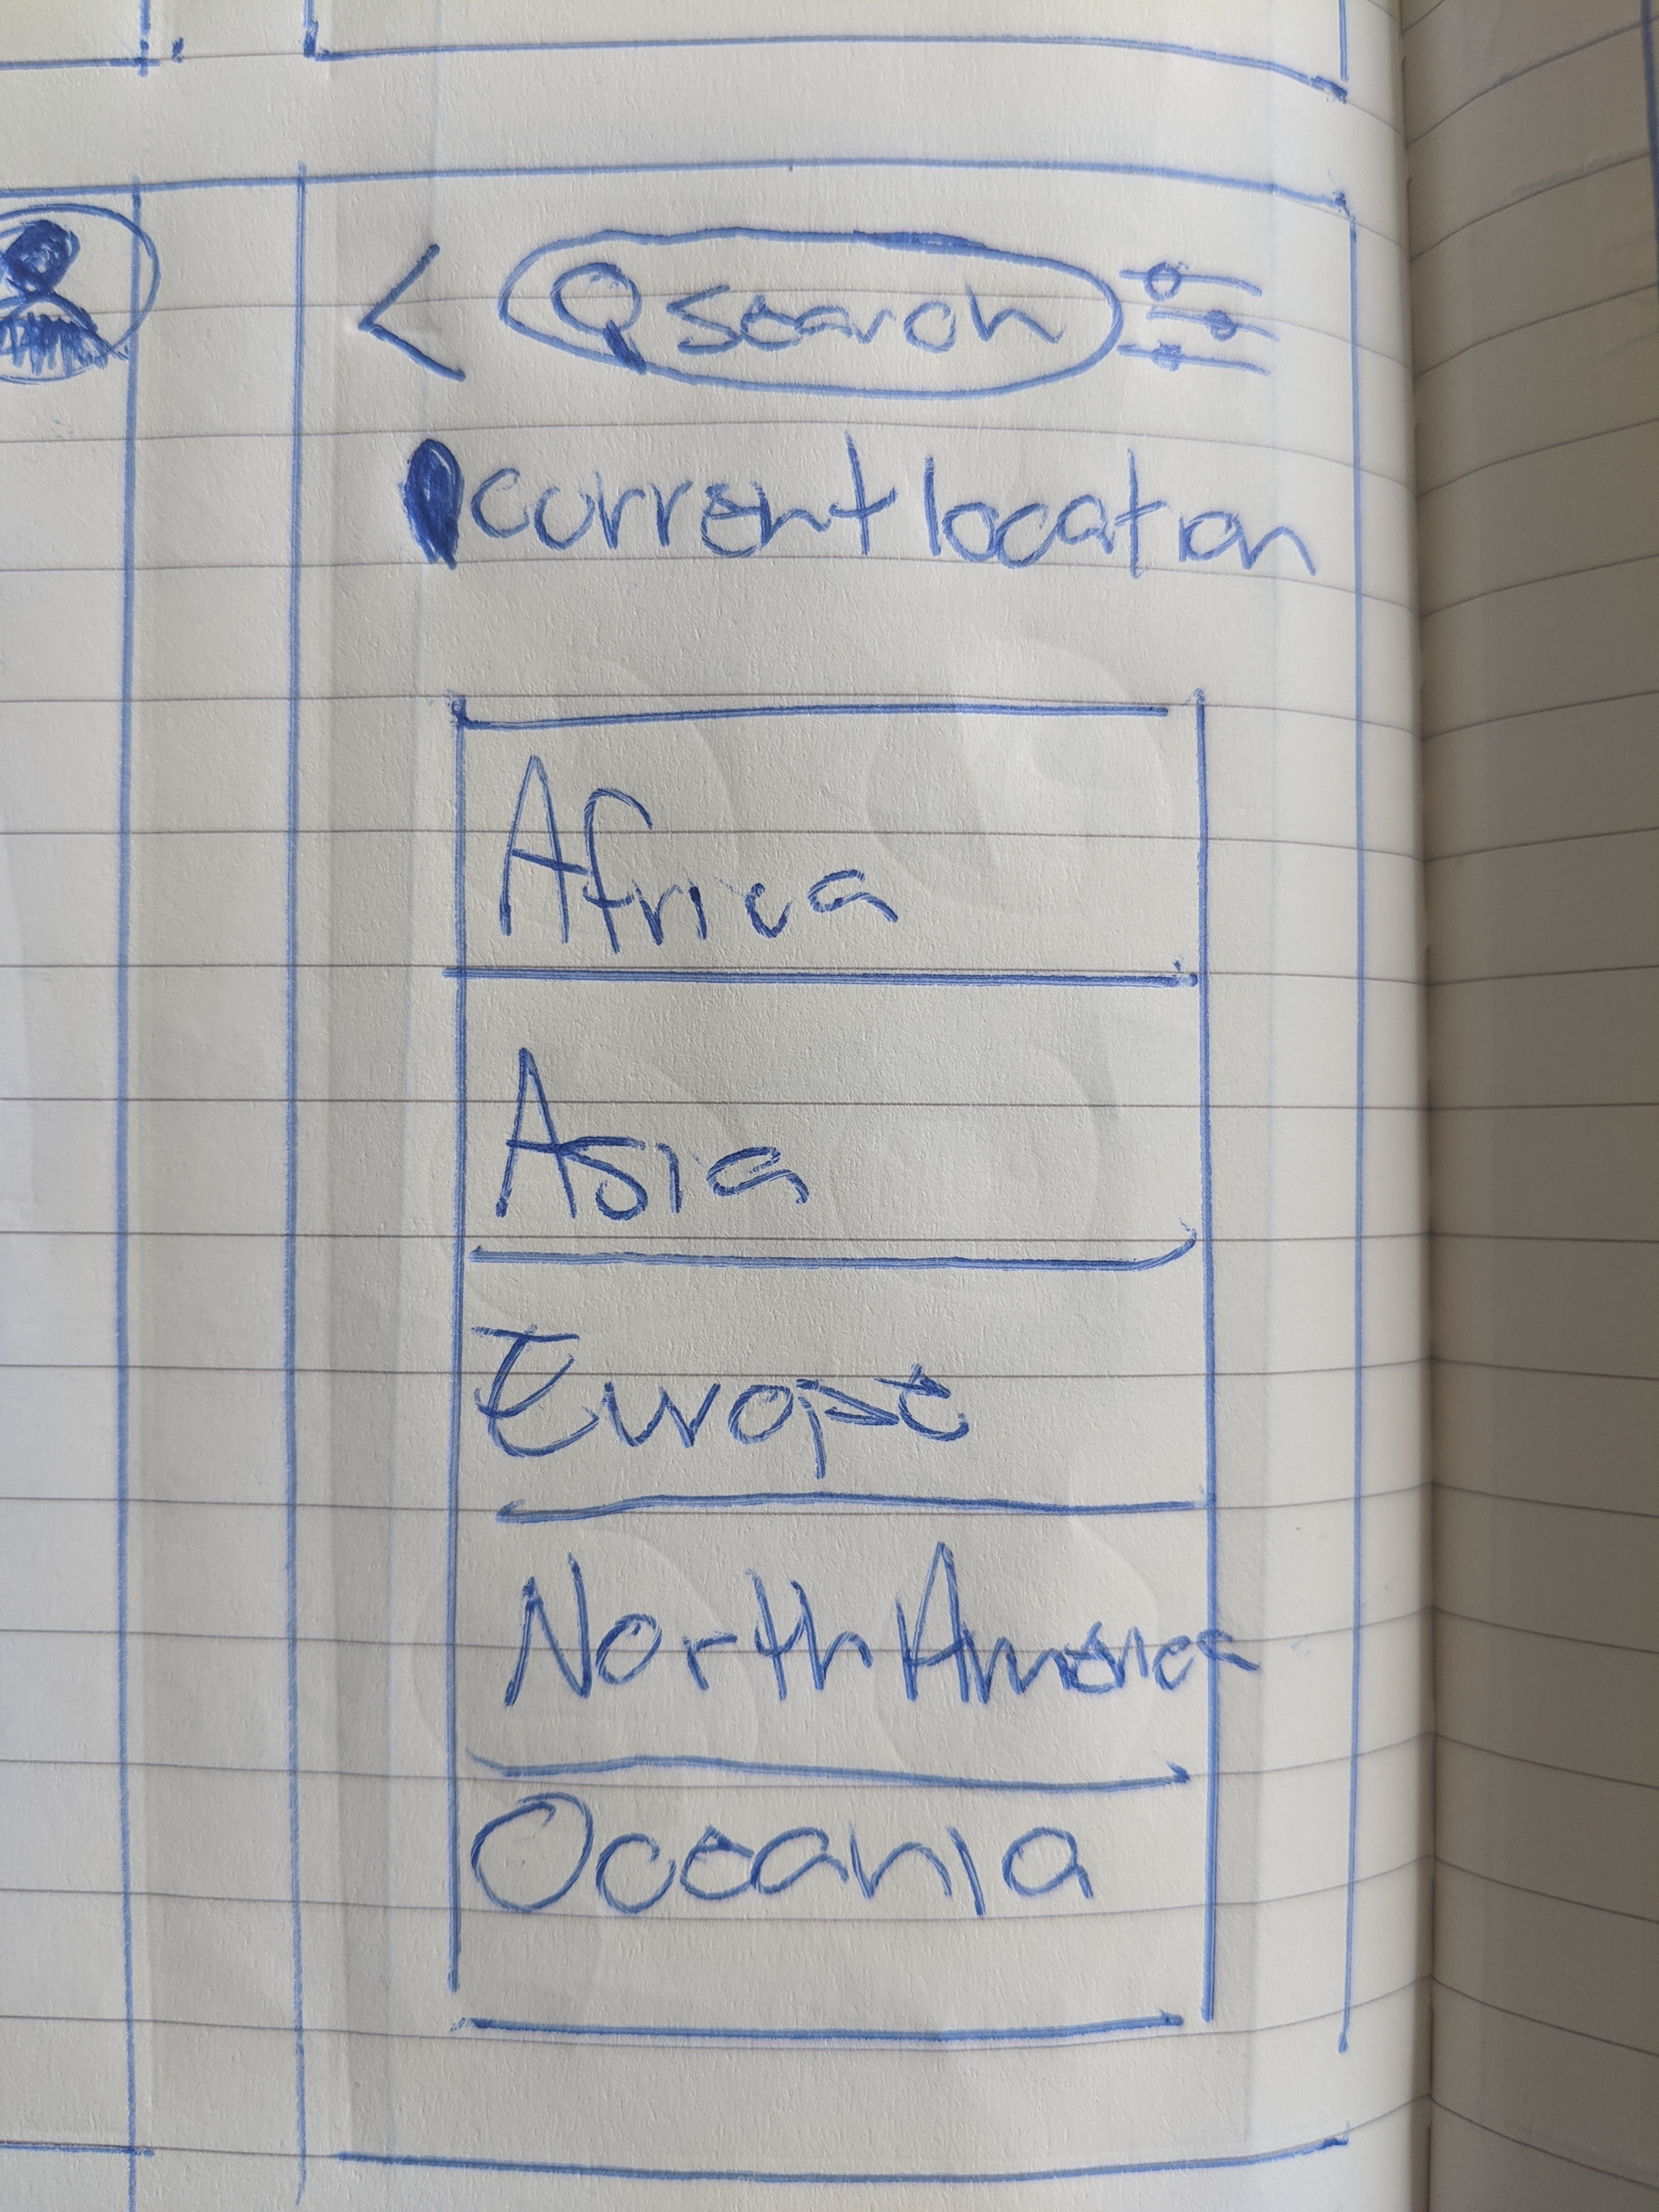 search
current location
Africa
Asia
Europe
North America
Oceania